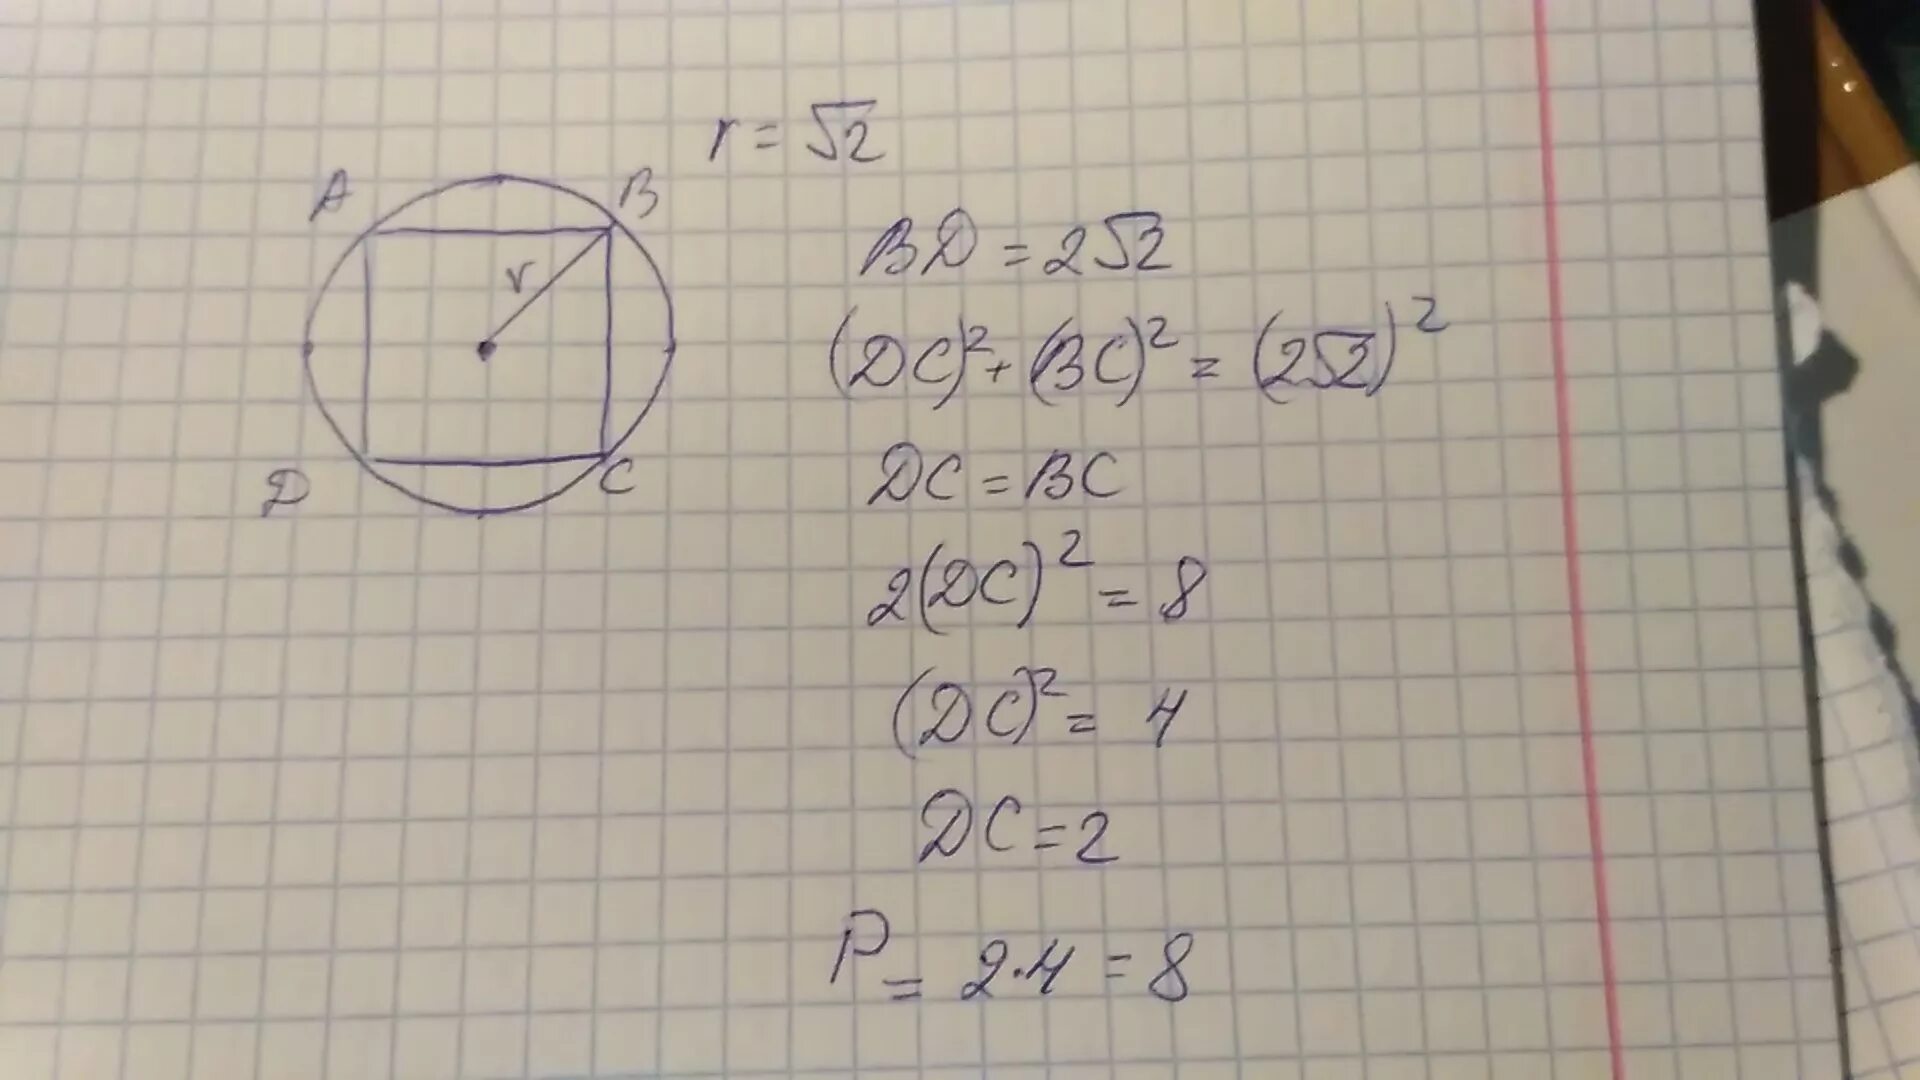 r = √2
A B
r
D C
BD = 2√2
(DC)² + (BC)² = (2√2)²
DC = BC
2(DC)² = 8
(DC)² = 4
DC = 2
P = 2·4 = 8